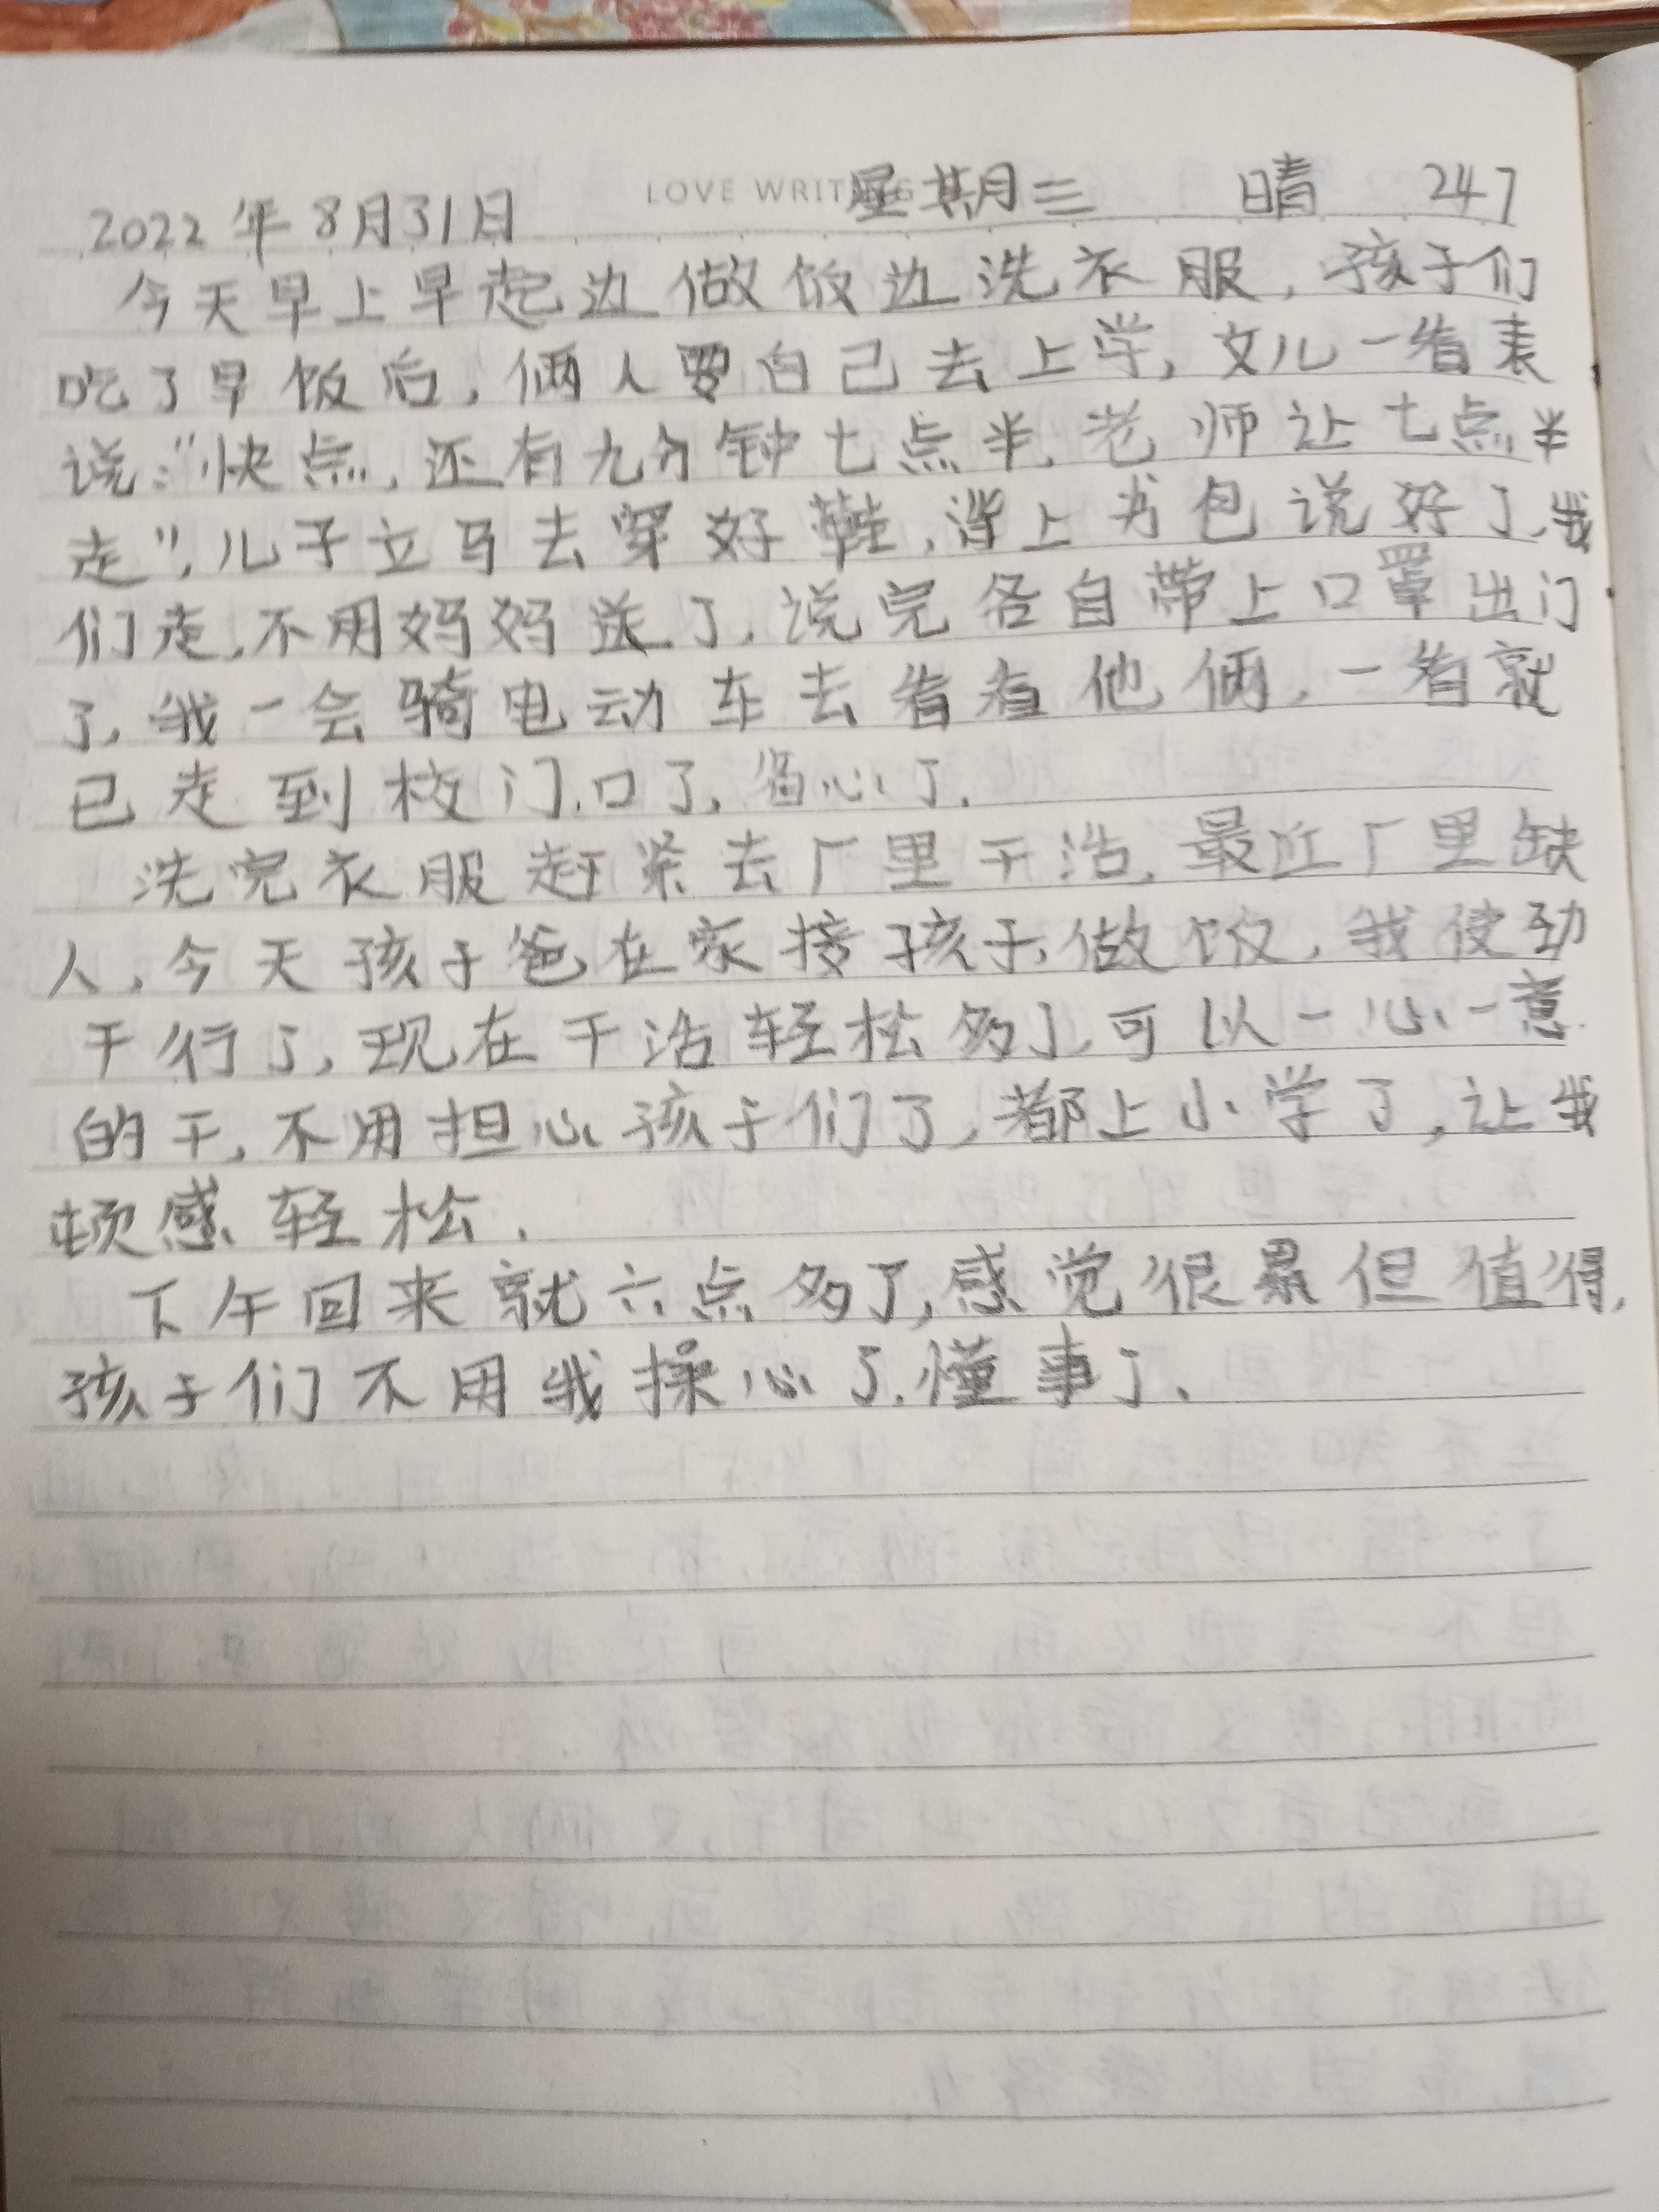 LOVE WRITING
2022年8月31日 星期三 晴 247
今天早上早起边做饭边洗衣服,孩子们
吃了早饭后,俩人要自己去上学,女儿一看表
说:"快点,还有九分钟七点半,老师让七点半
走",儿子立马去穿好鞋,背上书包说好了,我
们走,不用妈妈送了,说完各自带上口罩出门
了,我一会骑电动车去看看他俩,一看就
已走到校门口了,省心了.
洗完衣服赶紧去厂里干活,最近厂里缺
人,今天孩子爸在家接孩子,做饭,我使劲
干行了,现在干活轻松多了,可以一心一意
的干,不用担心孩子们了,都上小学了,让我
顿感轻松.
下午回来就六点多了,感觉很累但值得,
孩子们不用我操心了.懂事了.